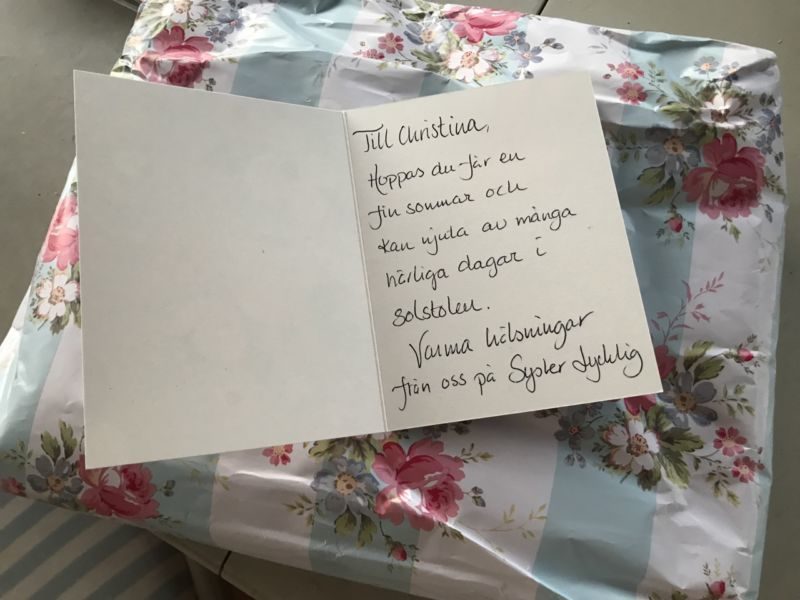 Till Christina,
Hoppas du får en
fin sommar och
kan njuta av många
härliga dagar i
solstolen.
Varma hälsningar
från oss på Syster Lycklig